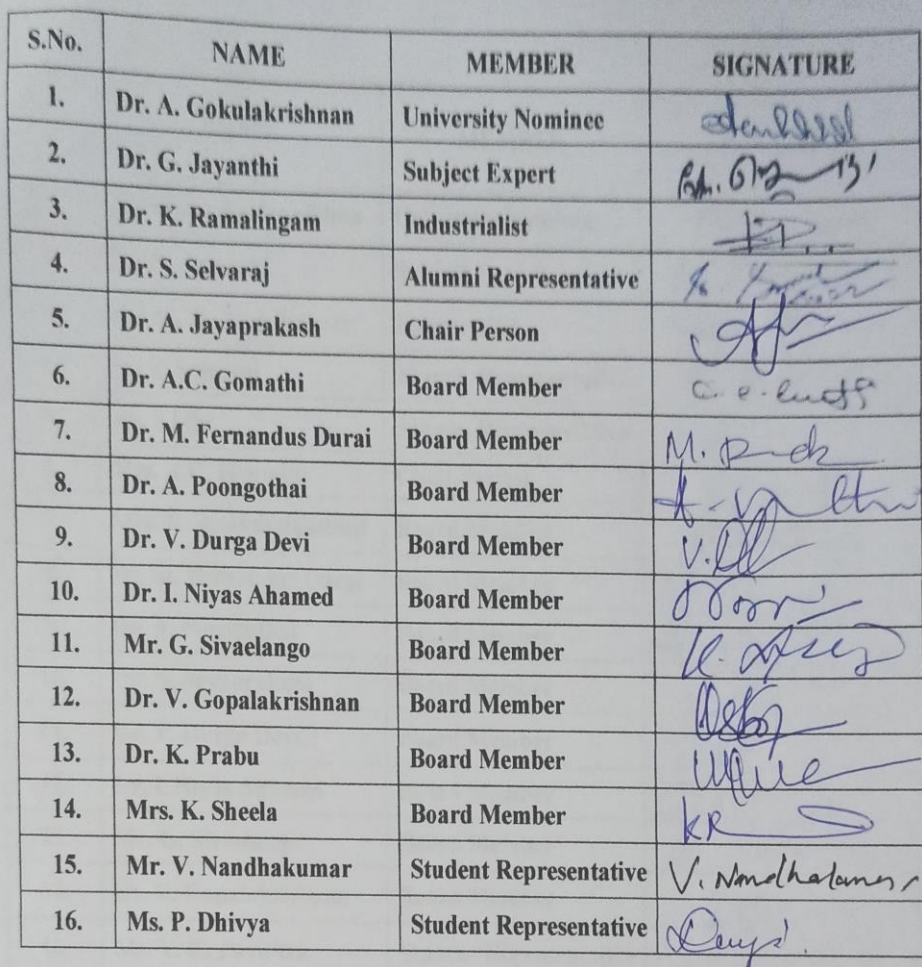 S.No. NAME MEMBER SIGNATURE
1. Dr. A. Gokulakrishnan University Nominee
2. Dr. G. Jayanthi Subject Expert
3. Dr. K. Ramalingam Industrialist
4. Dr. S. Selvaraj Alumni Representative
5. Dr. A. Jayaprakash Chair Person
6. Dr. A.C. Gomathi Board Member
7. Dr. M. Fernandus Durai Board Member M.
8. Dr. A. Poongothai Board Member
9. Dr. V. Durga Devi Board Member V.
10. Dr. I. Niyas Ahamed Board Member
11. Mr. G. Sivaelango Board Member
12. Dr. V. Gopalakrishnan Board Member
13. Dr. K. Prabu Board Member
14. Mrs. K. Sheela Board Member
15. Mr. V. Nandhakumar Student Representative V.
16. Ms. P. Dhivya Student Representative